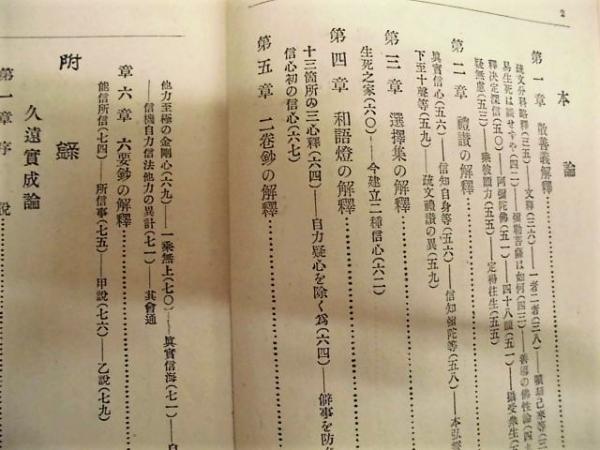 2
本論
第一章 散善義解釋
疏文分科略釋(三五)——文釋(三六)——一者二者(三八)
易生死は誤せすや(四二)——彌勒菩薩は如何(四三)——善導の佛性論
釋決定深信(五〇)——阿彌陀佛(五一)——四十八願(五一)——攝受衆生
疑無慮(五三)——乘彼願力(五五)——定得往生(五五)
第二章 禮讃の解釋
眞實信心(五六)——信知自身等(五六)——信知彌陀等(五八)——本弘
下至十聲等(五九)——疏文禮讃の異(五九)
第三章 選擇集の解釋
生死之家(六〇)——今建立二種信心(六二)
第四章 和語燈の解釋
十三箇所の三心釋(六四)——自力疑心を除く爲(六四)——僻事を防
信心初の信心(六七)
第五章 二卷鈔の解釋
他力至極の金剛心(六九)——一乘無上(七〇)——眞實信海(七一)——自
——信機自力信法他力の異計(七一)——其會通
章六章 六要鈔の解釋
能信所信(七四)——所信事(七五)——甲說(七六)——乙說(七九)
附錄
久遠實成論
第一章 序說